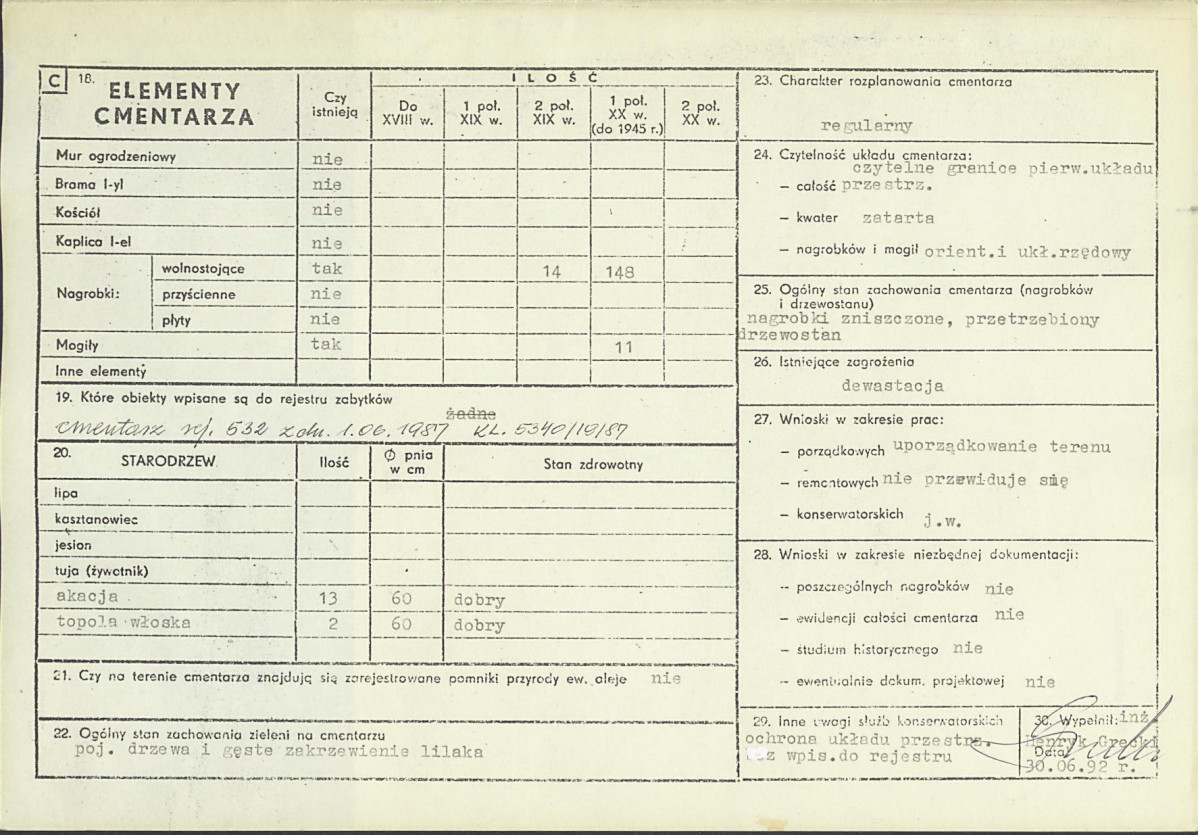 C 18. ELEMENTY CMENTARZA
Czy istnieją
ILOŚĆ
Do XVIII w.
1 poł. XIX w.
2 poł. XIX w.
1 poł. XX w. (do 1945 r.)
2 poł. XX w.
Mur ogrodzeniowy nie
Brama I-yl nie
Kościół nie
Kaplica I-el nie
Nagrobki:
wolnostojące tak 14 148
przyścienne nie
płyty nie
Mogiły tak 11
Inne elementy
19. Które obiekty wpisane są do rejestru zabytków
żadne
cmentarz rej. 532 z dn. 1.06.1987 KL. 5340/19/87
20. STARODRZEW Ilość Ø pnia w cm Stan zdrowotny
lipa
kasztanowiec
jesion
tuja (żywotnik)
akacja 13 60 dobry
topola włoska 2 60 dobry
21. Czy na terenie cmentarza znajdują się zarejestrowane pomniki przyrody ew. aleje nie
22. Ogólny stan zachowania zieleni na cmentarzu
poj. drzewa i gęste zakrzewienie lilaka
23. Charakter rozplanowania cmentarza
regularny
24. Czytelność układu cmentarza:
czytelne granice pierw.układu
– całość przestrz.
– kwater zatarta
– nagrobków i mogił orient.i ukł.rzędowy
25. Ogólny stan zachowania cmentarza (nagrobków
i drzewostanu)
nagrobki zniszczone, przetrzebiony
drzewostan
26. Istniejące zagrożenia
dewastacja
27. Wnioski w zakresie prac:
– porządkowych uporządkowanie terenu
– remontowych nie przewiduje się
– konserwatorskich j.w.
28. Wnioski w zakresie niezbędnej dokumentacji:
– poszczególnych nagrobków nie
– ewidencji całości cmentarza nie
– studium historycznego nie
– ewentualnie dokum. projektowej nie
29. Inne uwagi służb konserwatorskich
ochrona układu przestrz.
wpis.do rejestru
30. Wypełnił: inż.
Henryk Grecki
Data
30.06.92 r.